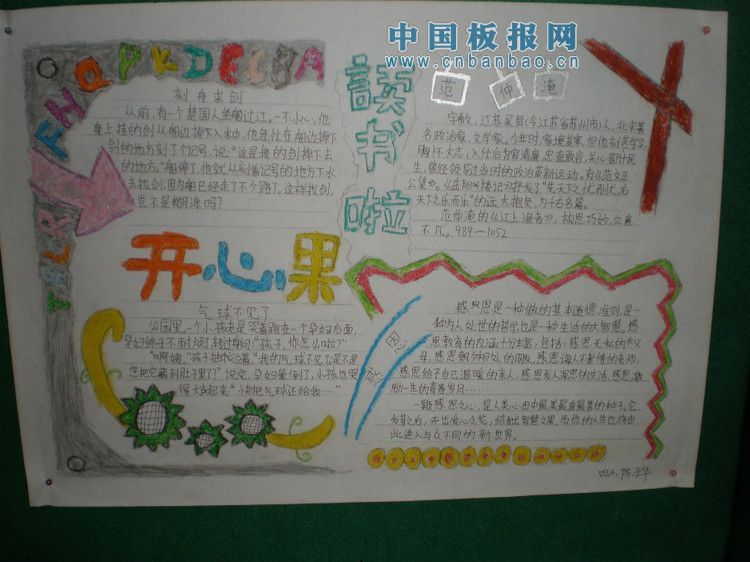 中国板报网
www.cnbanbao.cn
A B C E D K P
Q H F
T B L R
读书啦
刻舟求剑
从前,有一个楚国人坐船过江。一不小心,他
身上挂的剑从船边掉下入水中,他急忙在船边掉下
剑的地方刻了个记号,说:“这是我的剑掉下去
的地方。”船停了,他就从刻着记号的地方下水
去找剑。因为船已经走了不少路了。这样找剑,
岂不是糊涂吗?
范仲淹
字希文,江苏吴县(今江苏省苏州市)人,北宋著
名政治家,文学家。少年时,家境贫寒,但他刻苦学习
胸怀大志,入仕后为官清廉,忠直敢言,关心国计民
生,曾经领导过当时的政治革新运动。有《范文正
公集》。《岳阳楼记》抒发了“先天下之忧而忧,后
天下之乐而乐”的远大抱负,为千古名篇。
范仲淹的《江上渔者》,构思巧妙,立意
不凡。989—1052
开心果
气球不见了
公园里,一个小孩老是哭着跑在一个孕妇后面,
孕妇终于不耐烦了,转过身问:“孩子,你怎么啦?”
“阿姨。”孩子抽咽泣着。“我的气球不见了,是不是
您把它藏到肚子里了?”说完,孕妇晕倒了,小孩也哭
得大起来“快把气球还给我……”
感恩
感思恩是一种做的基本道德准则,是一
种为人处世的哲学也是一种生活的大智慧。感
恩教育的内涵十分丰富,包括:感恩无私的父
母,感恩朝夕相处的朋友,感恩诲人不倦的老师,
感恩给予自己温暖的亲人,感恩引人深思的生活,感恩
的一生的青春岁月……
一颗感恩之心,是人类心田中最美最真最善的种子。它
发芽之后,开出爱心之花,结新出智慧之果,而你的人生也将由
此进入与众不同的新世界。
四三 陈